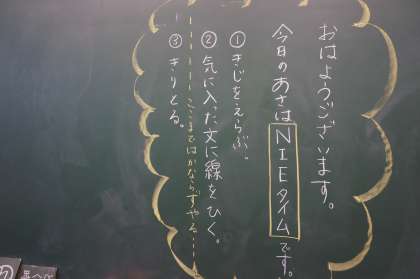 おはようございます。
今日のあさはNIEタイムです。
①きじをえらぶ。
②気に入った文に線をひく。
ここまではかならずやる
③きりとる。